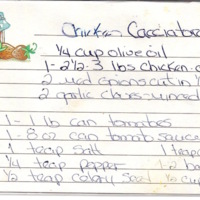 Chicken Cacciatore
1/4 cup olive oil
1- 2 1/2-3 lbs chicken
2 med onions cut in 1/
2 garlic cloves-minced
1- 1 lb can tomatoes
1- 8 oz can tomato sauce
1 teasp salt 1 teasp
1/4 teasp pepper 1-2 ba
1/2 teasp celery seed 1/2 cup